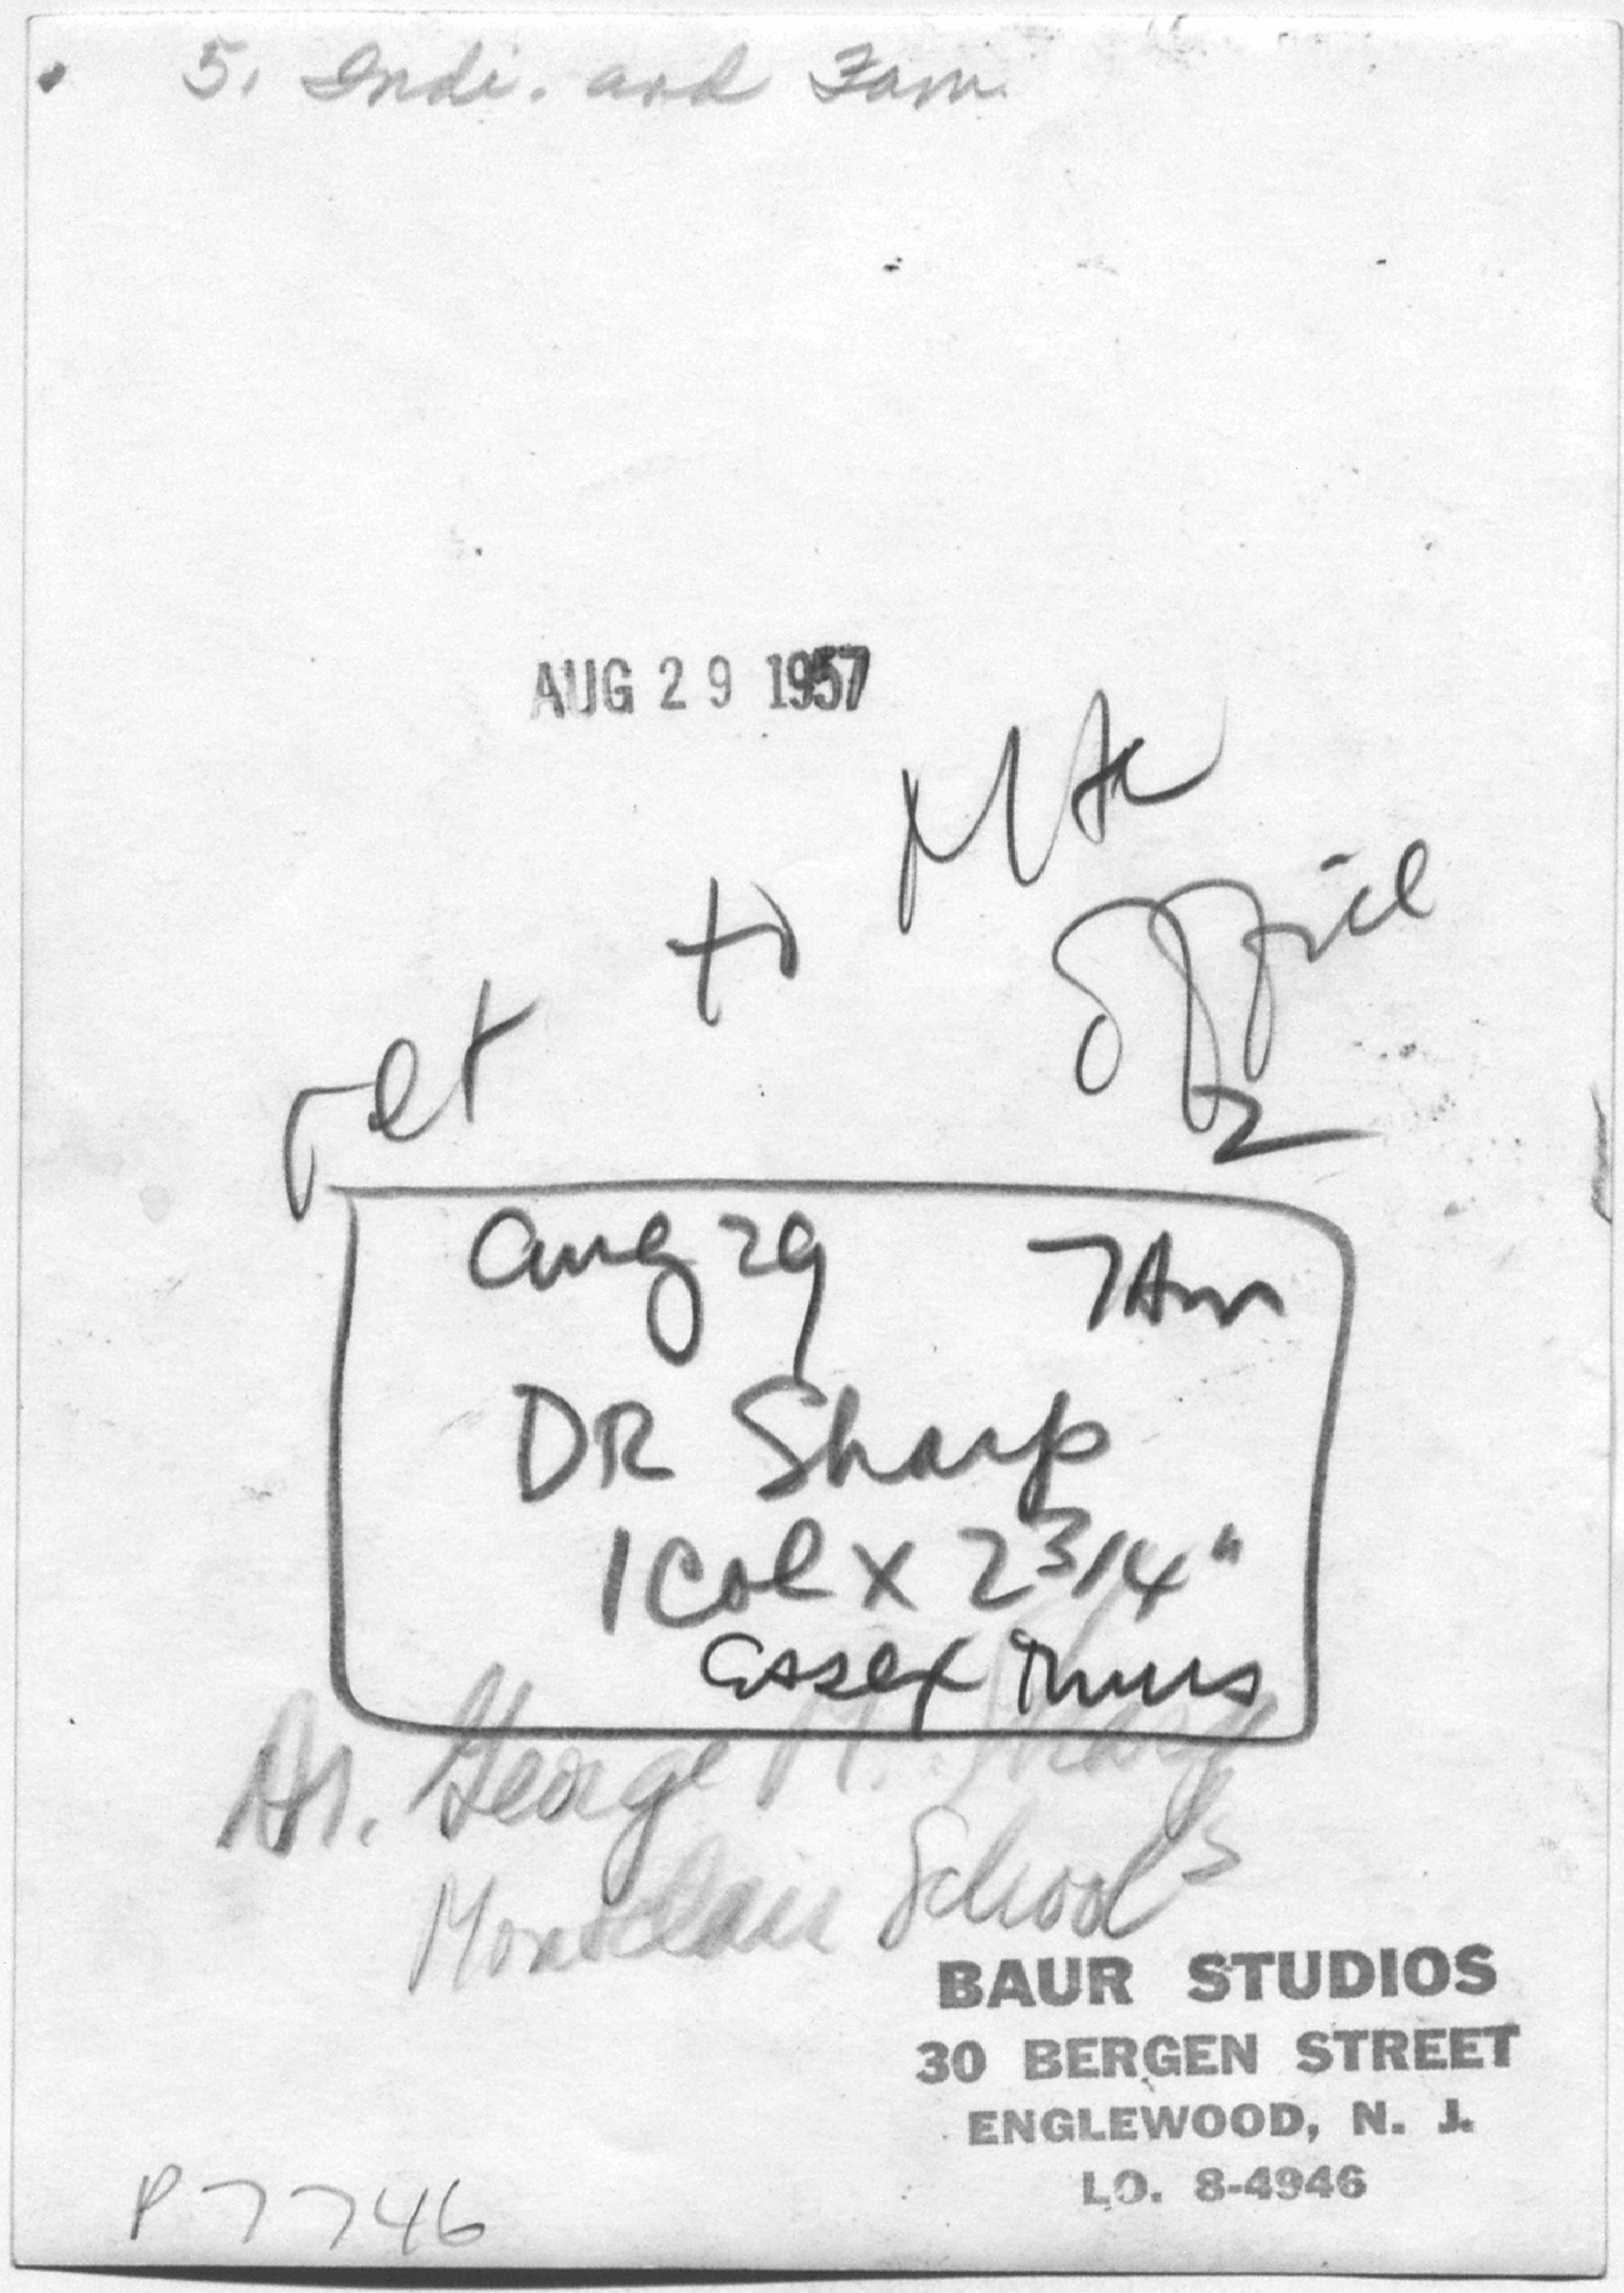 5. Indi. and Fam.
AUG 29 1957
ret to Mtc
office
2
Aug 29 7 Am
DR Sharp
1 Col x 2 3/4"
Essex Thurs
Dr. George M. Sharp
Montclair Schools
BAUR STUDIOS
30 BERGEN STREET
ENGLEWOOD, N. J.
LO. 8-4946
P 7746